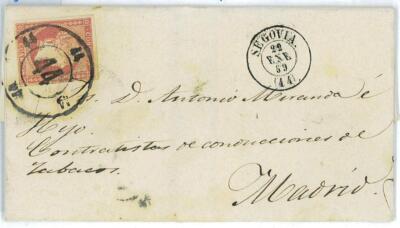 44
44
44
44
SEGOVIA.
22
ENE
59
(44)
S. D. Antonio Miranda é
Hijo.
Contratistas de conducciones de
tabacos.
Madrid.